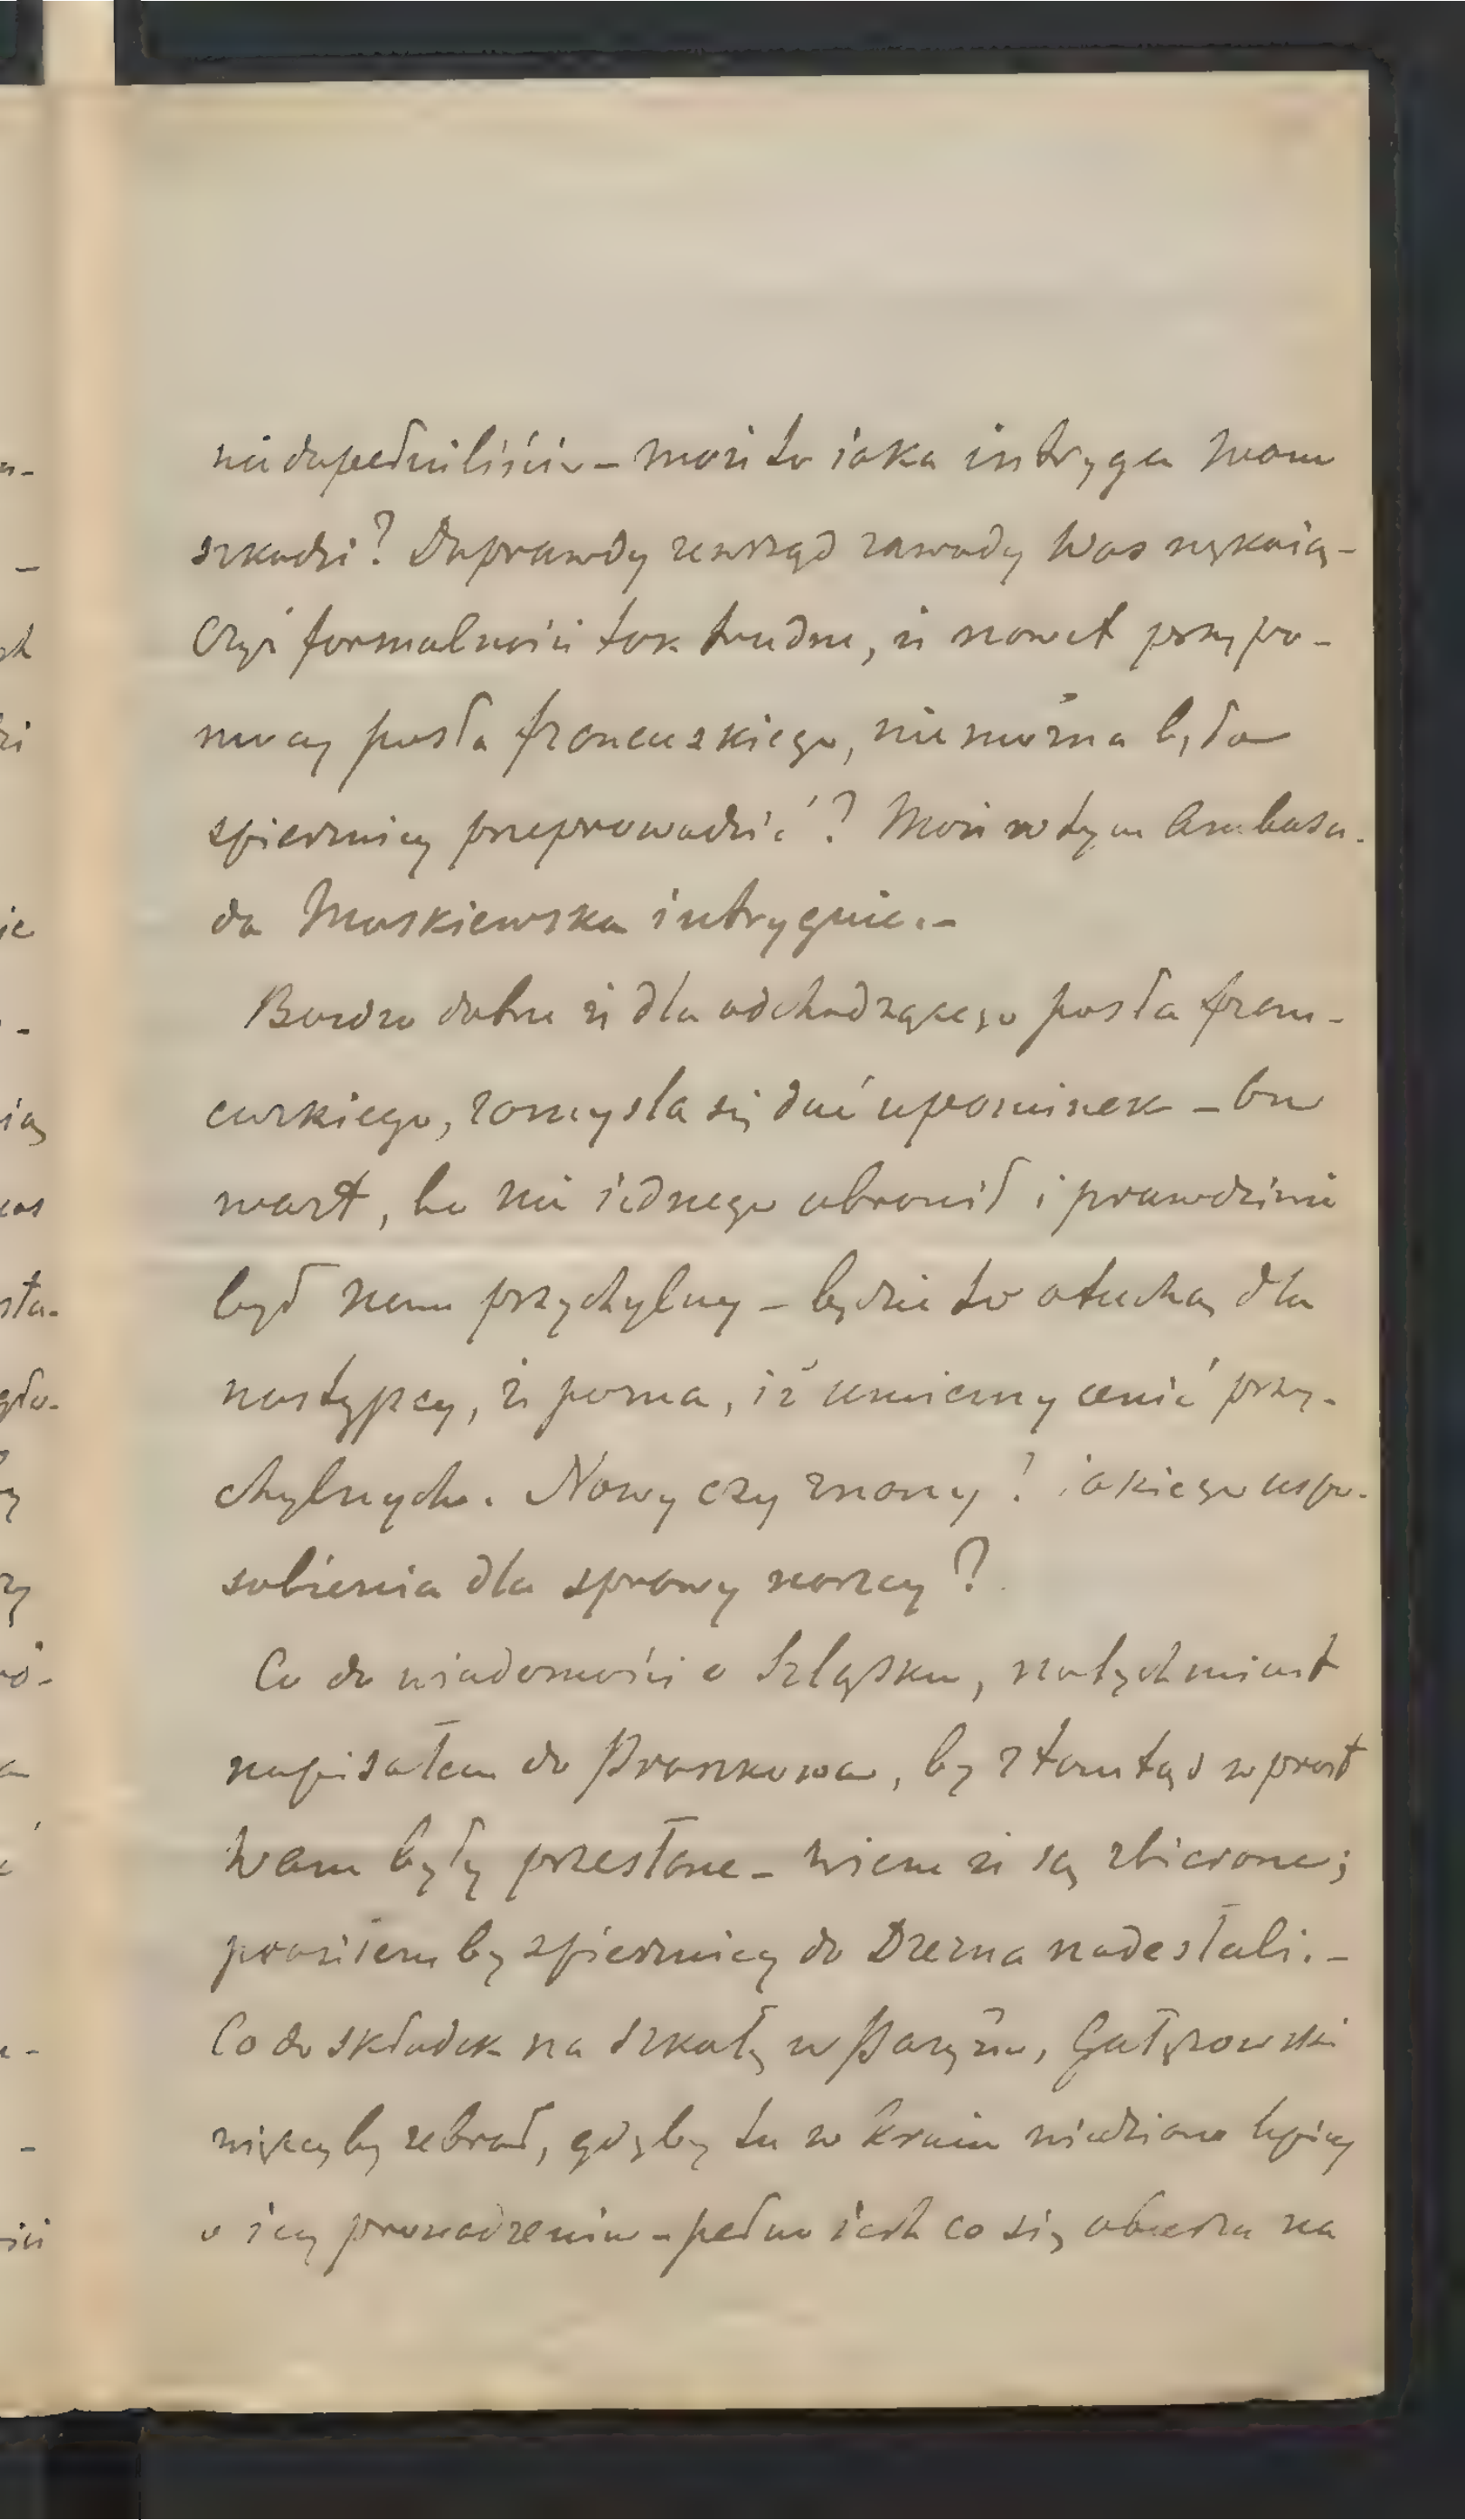 niedopełniliście – może to jaka intryga Wam
szkodzi? Doprawdy zewsząd zawody Was nękaią –
Czyż formalności tak trudne, iż nawet przy po-
mocy posła francuzkiego, nie można było
spieszniey przeprowadzić? Może w tym Ambasa-
da Moskiewska intryguie. –
Bardzo dobrze że dla odchodzącego posła fran-
cuzkiego, zamyśla się dać upominek – on
wart, bo nie iednego obronił i prawdziwie
był nam przychylny – będzie to otuchą dla
następcy, że pozna, iż umiemy cenić przy-
chylnych. Nowy czy znany? iakiego uspo-
sobienia dla sprawy naszey?
Co do wiadomości o Szląsku, natychmiast
napisałem do Kraszkowa, by ztamtąd wprost
Wam były przesłane – wiem że są zbierane;
prosiłem by spieszniey do Drezna nadesłali. –
Co do składek na szkołę w Paryżu, Gałęzowski
więcey by zebrał, gdyby tu w kraiu wiedziano lepiey
o iey prowadzeniu – pełno iest co się oburza na
ście
ią